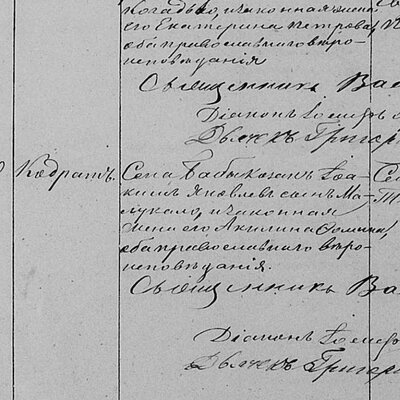 его Екатерина Петрова,
оба православнаго вѣро-
исповѣданія
Священникъ Вас
Діаконъ Іосифъ
Дьячекъ Григор
Кодратъ. Села Бабы казакъ Іоа-
кимъ Яковлевъ сынъ Ма-
лукало, и законная
жена его Акилина Фомина,
оба православнаго вѣро-
исповѣданія.
Священникъ Ва
Діаконъ Іосиф
Дьячекъ Григор